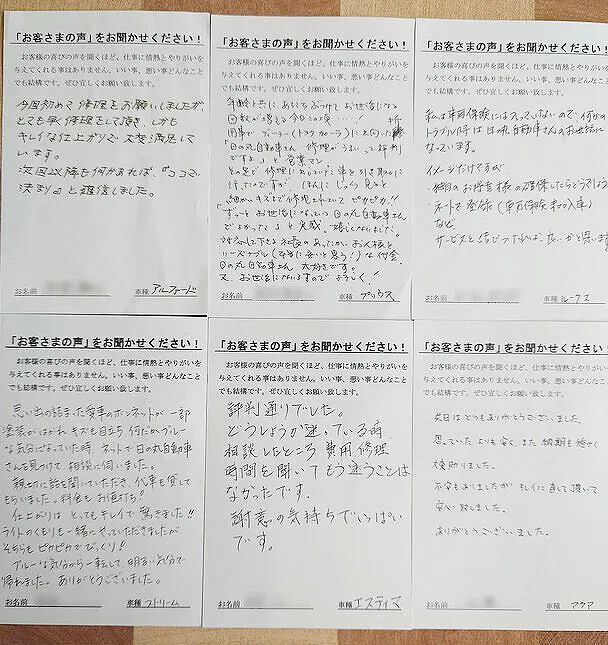 「お客さまの声」をお聞かせください！
お客様の喜びの声を聞くほど、仕事に情熱とやりがいを
与えてくれる事はありません。いい事、悪い事どんなこと
でも結構です。ぜひ宜しくお願い致します。
今回初めて修理をお願いしましたが
とても早く修理をして頂き、しかも
キレイな仕上がりで大変満足して
います。
次回以降も何かあれば、『ココで
決まり』と確信しました。
お名前 車種 アルファード
「お客さまの声」をお聞かせください！
お客様の喜びの声を聞くほど、仕事に情熱とやりがいを
与えてくれる事はありません。いい事、悪い事どんなこと
でも結構です。ぜひ宜しくお願い致します。
年齢と共に、あちこちぶつけてお世話になる
回数が増える今日この頃…！
「日の丸自動車さん 修理がうまいって評判
ですよ」と営業マン
細かいキズまで修理されていてピカピカ!!
「ずっとお世話になっている日の丸自動車さん
でよかった」と実感、嬉しくなりました。
日の丸自動車さん 大好きです。
又、お世話になりますのでよろしく！
お名前 車種 プリウス
「お客さまの声」をお聞かせください！
お客様の喜びの声を聞くほど、仕事に情熱とやりがい
与えてくれる事はありません。いい事、悪い事どんな
でも結構です。ぜひ宜しくお願い致します。
私は車両保険には入っていないので、何かの
トラブル時は日の丸自動車さんのお世話に
なっています。
イメージだけですが
・ネットで登録（車両保険未加入車）
など
サービスと結びつければ、良いかと思います
お名前 車種 ルークス
「お客さまの声」をお聞かせください！
お客様の喜びの声を聞くほど、仕事に情熱とやりがいを
与えてくれる事はありません。いい事、悪い事どんなこと
でも結構です。ぜひ宜しくお願い致します。
思い出の詰まった愛車のボンネットが一部
塗装がはがれ、キズも目立つ 何だかブルー
な気分になっていた時、ネットで日の丸自動車
さんを見つけて相談に伺いました。
親切に話を聞いていただき、代車も貸して
もらいました。料金もお値打ち！
仕上がりは とってもキレイで驚きました!!
ライトのくもりも一緒にやっていただきましたが
そちらもピカピカでびっくり!!
ブルーな気分から一転して明るい気分で
帰れました。ありがとうございました。
お名前 車種 ストリーム
「お客さまの声」をお聞かせください！
お客様の喜びの声を聞くほど、仕事に情熱とやりがいを
与えてくれる事はありません。いい事、悪い事どんなこと
でも結構です。ぜひ宜しくお願い致します。
評判通りでした。
どうしようか迷っている時
相談したところ 費用 修理
時間を聞いてもう迷うことは
なかったです。
謝意の気持ちでいっぱい
です。
お名前 車種 エスティマ
「お客さまの声」をお聞かせください！
お客様の喜びの声を聞くほど、仕事に情熱とやりがい
与えてくれる事はありません。いい事、悪い事どんな
でも結構です。ぜひ宜しくお願い致します。
先日はどうもありがとうございました。
思っていたよりも安く、また 納期も短かく
大変助りました。
不安もありましたが キレイに直して頂いて
安心致しました。
ありがとうございました。
お名前 車種 アクア